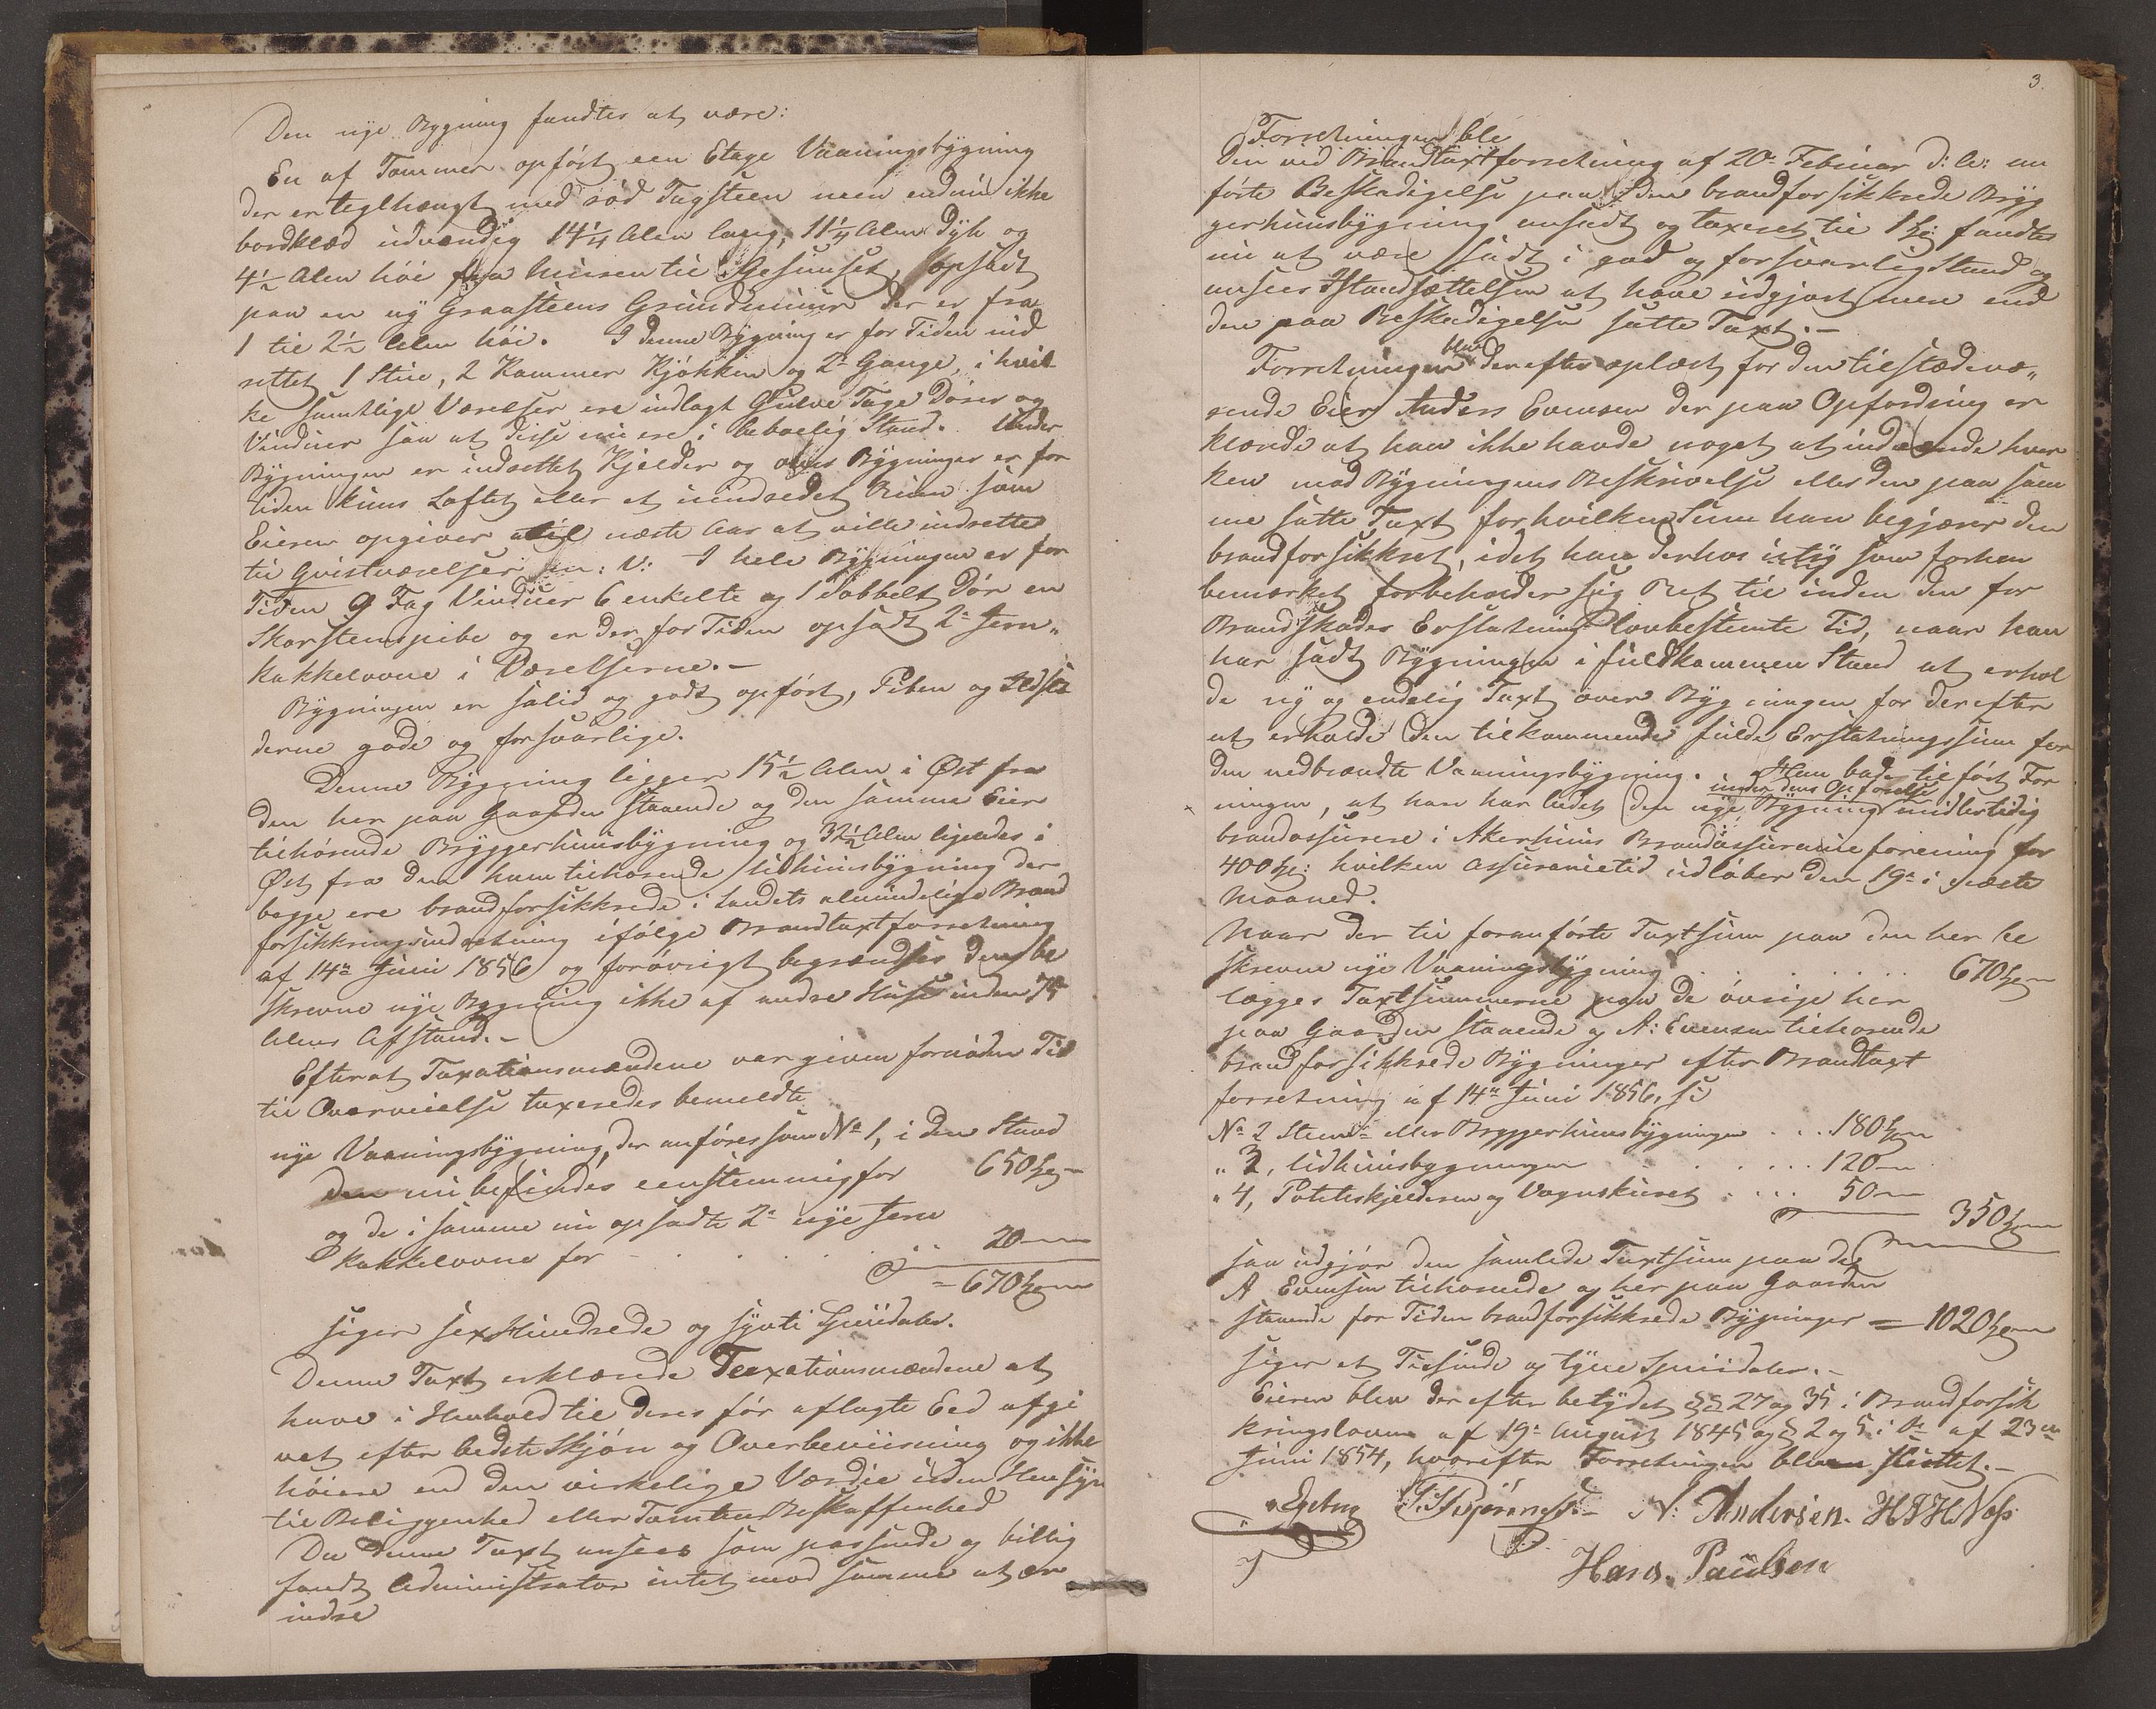 Den nye Bygning fandtes at være:
En af Tømmer opført een Etage Vaaningsbygning
der er teglhængt med rød Tagsteen men endnu ikke
bordklæd udvendig 14 1/4 Alen lang, 11 1/4 Alen dyb og
4 1/2 Alen høi fra Muren til Gesimset, opsadt
paa en ny Graasteens Grundmuur der er fra
1 til 2 1/2 Alen høi. I denne Bygning er for Tiden ind
rettet 1 Stue, 2 Kammer Kjøkken og 2de Gange, i hvil
ke samtlige Værelser ere indlagt Gulve Tage Dører og
Vinduer saa at disse nu ere i beboelig Stand. Under
Bygningen er indrettet Kjelder og over Bygningen er for
tiden kuns Loftet eller et uindredet Rum som
Eieren opgiver til næste Aar at ville indrette
til Qvistværelser m: V: I hele Bygningen er for
Tiden 9 Fag Vinduer 6 enkelte og 1 dobbelt Dør en
Skorstenspibe og er der for Tiden opsadt 2de Jern„
kakkelovne i Værelserne.-
Bygningen er solid og godt opført, Piben og Ildste
derne gode og forsvarlige.
Denne Bygning ligger 15 1/2 Alen i Øst fra
den her paa Gaarden staaende og den samme Eier
tilhørende Bryggerhuusbygning og 32 1/2 Alen ligeledes i
Øst fra den ham tilhørende Udhuusbygning der
begge ere brandforsikkrede i Landets almindelige Brand
forsikkringsindretning ifølge Brandtaxtforretning
af 14de Juni 1856 og forøvrigt begrændses den be
skrevne nye Bygning ikke af andre Huse inden 75
Alens Afstand.-
Efterat Taxationsmændene var given fornøden Tid
til Overveielse taxeredes bemeldte
nye Vaaningsbygning, der anføres som No 1, i den Stand
den nu befindes eenstemmig for 650 Spd -
og de i samme nu opsadte 2de nye Jern
kakkelovne for . . . . . 20 -
= 670 Spd
siger sex Hundrede og sytti Speciedaler.
Denne Taxt erklærede Taxationsmændene at
have i Henhold til deres før aflagte Eed afgi
vet efter bedste Skjøn og Overbeviisning og ikke
høiere end den virkelige Værdie uden Hensyn
til Beliggenhed eller Tomtens Beskaffenhed
Da denne Taxt ansees som passende og billig
fandt Administrator intet mod samme at er
indre
3.
Forretningen ble
Den ved Brandtaxtforretning af 20de Februar d: A: an
førte Beskadigelse paa den brandforsikkrede Bryg
gerhuusbygning ansadt og taxeret til 1 Spd: fandtes
nu at være sadt i god og forsvarlig Stand og
ansees Istandsættelsen at have udgjort mere end
den paa Beskadigelsen satte Taxt.-
Forretningen blev derefter oplæst for den tilstædevæ„
rende Eier Anders Evensen der paa Opfordring er
klærede at han ikke havde noget at indvende hver
ken mod Bygningens Beskrivelse eller den paa sam
me satte Taxt for hvilken Sum han begjærer den
brandforsikkret, idet han derhos som forhen
bemærket forbeholder sig Ret til inden den for
Brandskades Erstatning lovbestemte Tid, naar han
har sadt Bygningen i fuldkommen Stand at erhol
de ny og endelig Taxt over Bygningen for derefter
at erholde den tilkommende fulde Erstatningssum for
den nedbrændte Vaaningsbygning. Han bad tilført For
ningen, at han har ladet den nye Bygning under dens Opførelse midlertidig
brandassurere i Akershuus Brandassuranceforening for
400 Spd: hvilken Assurancetid udløber den 19de i næste
Maaned.
Naar der til foranførte Taxtsum paa den her be
skrevne nye Vaaningsbygning . . . . . . 670 Spd
lægges Taxtsummerne paa de øvrige her
paa Gaarden staaende og A: Evensen tilhørende
brandforsikkrede Bygninger efter Brandtaxt
forretning af 14de Juni 1856,
No 2 Steens- eller Bryggerhuusbygningen . . . 180 Spd
" 3, Udhuusbygningen . . . . . . 120 -
" 4, Poteteskjelderen og Vognskuret . . . . 50 -
350 Spd
saa udgjør den samlede Taxtsum paa de
A Evensen tilhørende og her paa Gaarden
staaende for Tiden brandforsikkrede Bygninger = 1020 Spd
siger et Tusinde og tyve Speciedaler.-
Eieren blev derefter betydet §§ 27 og 35 i Brandforsik
kringsloven af 19de August 1845 og § 2 og 5 i do af 23de
Juni 1854, hvorefter Forretningen blev sluttet.-
N: Andersen. H J H Næss
Hans Paulsen